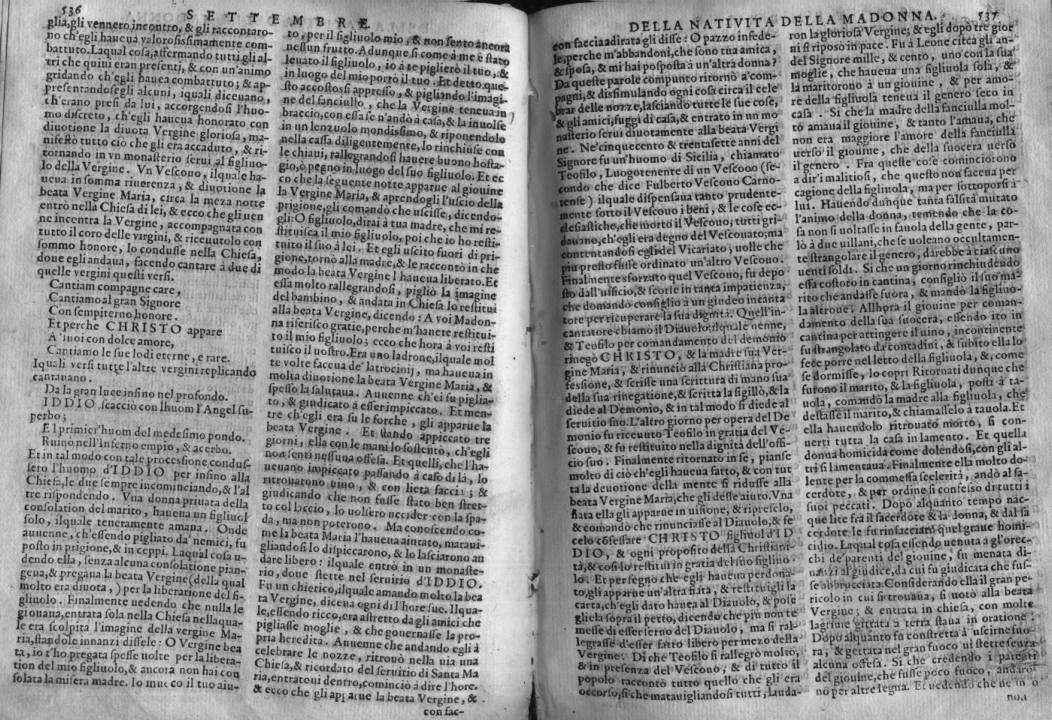 536
SETTEMBRE
glia, gli vennero incontro, & gli raccontaro-
no ch'egli haueua valorosissimamente com-
battuto. Laqual cosa, affermando tutti gli al-
tri che quiui eran presenti, & con vn'animo
gridando ch'egli hauea combattuto; & ap-
presentandosegli alcuni, iquali diceuano,
ch'erano presi da lui, accorgendosi l'huo-
mo discreto, ch'egli haueua honorato con
diuotione la diuota Vergine gloriosa, ma-
nifestò tutto ciò che gli era accaduto, & ri-
tornando in vn monasterio seruì al figliuo-
lo della Vergine. Vn Vescouo, ilquale ha-
ueua in somma riuerenza, & diuotione la
beata Vergine Maria, circa la meza notte
entrò nella Chiesa di lei, & ecco che gli uen
ne incontra la Vergine, accompagnata con
tutto il coro delle vergini, & riceuutolo con
sommo honore, lo condusse nella Chiesa,
doue egli andaua, facendo cantare à due di
quelle vergini questi versi.
Cantiam compagne care,
Cantiamo al gran Signore
Con sempiterno honore.
Et perche CHRISTO appare
A 'nuoi con dolce amore,
Cantiamo le sue lodi eterne, e rare.
Iquali versi tutte l'altre vergini replicando
cantauano.
Da la gran luce infino nel profondo.
IDDIO scacciò con lhuom l'Angel su-
perbo;
E'l primer'huom del medesimo pondo.
Ruinò nell'inferno empio, & acerbo.
Et in tal modo con tale processione condus-
sero l'huomo d'IDDIO per infino alla
Chiesa, le due sempre incominciando, & l'al
tre rispondendo. Vna donna priuata della
consolation del marito, haueua vn figliuol
solo, ilquale teneramente amaua. Onde
auuenne, ch'essendo pigliato da' nemici, fu
posto in prigione, & in ceppi. Laqual cosa u-
dendo ella, senza alcuna consolatione pian-
geua, & pregaua la beata Vergine (della qual
molto era diuota,) per la liberatione del fi-
gliuolo. Finalmente uedendo che nulla le
giouaua, entrata sola nella Chiesa nellaqua-
le era scolpita l'imagine della vergine Ma-
ria, standole innanzi dissele: O Vergine bea
ta, io t'ho pregata spesse uolte per la libera-
tion del mio figliuolo, & ancora non hai con
solata la misera madre. Io inuoco il tuo aiu-
to, per il figliuolo mio, & non sento ancora
nessun frutto. Adunque si come à me è stato
leuato il figliuolo, io à te piglierò il tuo, &
in luogo del mio porrò il tuo. Et detto que-
sto accostossi appresso, & pigliando l'imagi-
ne del fanciullo, che la Vergine teneua in
braccio, con essa se n'andò à casa, & la inuolse
in un lenzuolo mondissimo, & riponendolo
nella cassa diligentemente, lo rinchiuse con
le chiaui, rallegrandosi hauere buono hosta-
gio, ò pegno in luogo del suo figliuolo. Et ec
co che la seguente notte apparue al giouine
la Vergine Maria, & aprendogli l'uscio della
prigione, gli comandò che uscisse, dicendo-
gli: O figliuolo, dirai à tua madre, che mi re-
stituisca il mio figliuolo, poi che io ho resti-
tuito il suo à lei. Et egli uscito fuori di pri-
gione, tornò alla madre, & le raccontò in che
modo la beata Vergine l'haueua liberato. Et
essa molto rallegrandosi, pigliò la imagine
del bambino, & andata in Chiesa lo restituì
alla beata Vergine, dicendo: A voi Madon-
na riferisco gratie, perche m'hauete restitui-
to il mio figliuolo; ecco che hora à voi resti
tuisco il uostro. Era uno ladrone, ilquale mol
te volte faceua de' latrocinij, ma haueua in
molta diuotione la beata Vergine Maria, &
spesso la salutaua. Auuenne ch'ei fu piglia-
to, & giudicato à esser impiccato. Et men-
tre ch'egli era su le forche, gli apparue la
beata Vergine. Et stando appiccato tre
giorni, ella con le mani lo sostentò, ch'egli
non sentì nessuna offesa. Et quelli, che l'ha-
ueuano impiccato passando à caso di là, lo
ritrouarono uiuo, & con lieta faccia; &
giudicando che non fusse stato ben stret-
to col laccio, lo uolsero uccider con la spa-
da, ma non poterono. Ma conoscendo co-
me la beata Maria l'haueua aiutato, marаui-
gliandosi lo dispiccarono, & lo lasciarono an
dare libero: ilquale entrò in un monaste-
rio, doue stette nel seruitio d'IDDIO.
Fu un chierico, ilquale amando molto la bea
ta Vergine, diceua ogni dì l'hore sue. Ilqua-
le, essendo ricco, era astretto da gli amici che
pigliasse moglie, & che gouernasse la pro-
pria heredita. Auuenne che andando egli à
celebrare le nozze, ritrouò nella uia una
Chiesa, & ricordato del seruitio di Santa Ma
ria, entratoui dentro, cominciò à dire l'hore.
& ecco che gli apparue la beata Vergine, &
con fac-
DELLA NATIVITA DELLA MADONNA.
537
con faccia adirata gli disse: O pazzo infede-
le, perche m'abbandoni, che sono tua amica,
& sposa, & mi hai posposta à un'altra donna?
Da queste parole compunto ritornò a' com-
pagni, & dissimulando ogni cosa circa il cele
brar delle nozze, lasciando tutte le sue cose,
& gli amici, fuggì di casa, & entrato in un mo
nasterio serui diuotamente alla beata Vergi
ne. Ne' cinquecento & trentasette anni del
Signore su un'huomo di Sicilia, chiamato
Teofilo, Luogotenente di un Vescouo (se-
condo che dice Fulberto Vescouo Carno-
tense) ilquale dispensaua tanto prudente-
mente sotto il Vescouo i beni, & le cose ec-
clesiastiche, che morto il Vescouo, tutti gri-
dauano, ch'egli era degno del Vescouato; ma
contentandosi egli del Vicariato, uolle che
piu presto fusse ordinato un'altro Vescouo.
Finalmente sforzato quel Vescouo, fu depo
sto dall'ufficio, & scorse in tanta impatienza,
che domandò consiglio à un giudeo incanta
tore per ricuperare la sua dignità. Quell'in-
cantatore chiamò il Diauolo: ilquale uenne,
& Teofilo per comandamento del demonio
rinegò CHRISTO, & la madre sua Ver-
gine Maria, & rinunciò alla Christiana pro-
fessione, & scrisse una scrittura di mano sua
della sua rinegatione, & scritta la sigillò, & la
diede al Demonio, & in tal modo si diede al
seruitio suo. L'altro giorno per opera del De
monio fu riceuuto Teofilo in gratia del Ve-
scouo, & fu restituito nella dignità dell'offi-
cio suo. Finalmente ritornato in se, pianse
molto di ciò ch'egli haueua fatto, & con tut
ta la deuotione della mente si ridusse alla
beata Vergine Maria, che gli desse aiuto. Vna
fiata ella gli apparue in uisione, & ripreselo,
& comandò che rinunciasse al Diauolo, & fe
celo cōfessare CHRISTO figliuol d'ID
DIO, & ogni proposito della Christiani-
tà, & così lo restituì in gratia del suo figliuo-
lo. Et per segno che egli haueua perdona-
to, gli apparue un'altra fiata, & restituigli la
carta, ch'egli dato haueua al Diauolo, & pose
gliela sopra il petto, dicendo che piu non te
messe di esser seruo del Diauolo, ma si ral-
legrasse d'esser fatto libero per mezo della
Vergine. Di che Teofilo si rallegrò molto,
& in presenza del Vescouo, & di tutto il
popolo raccontò tutto quello che gli era
occorso, si che marauigliandosi tutti, lauda-
ron la gloriosa Vergine; & egli dopo tre gior
ni si riposò in pace. Fu à Leone circa gli an-
del Signore mille, & cento, uno con la sua
moglie, che haueua una figliuola sola, &
la maritorono à un giouine; & per amo-
re della figliuola teneua il genero seco in
casa. Si che la madre della fanciulla mol-
to amaua il giouine, & tanto l'amaua, che
non era maggiore l'amore della fanciulla
uerso il giouine, che della suocera uerso
il genero. Fra queste cose cominciorono
à dir'i malitiosi, che questo non faceua per
cagione della figliuola, ma per sottoporsi à
lui. Hauendo dunque tanta falsità mutato
l'animo della donna, temendo che la co-
sa non si uoltasse in fauola della gente, par-
lò à due uillani, che se uoleano occultamen-
te strangolare il genero, darebbe à ciascuno
uenti soldi. Si che un giorno rinchiudendo
essa costoro in cantina, consigliò il suo ma-
rito che andasse fuora, & mandò la figliuo-
la altroue. Allhora il giouine per coman-
damento della sua suocera, essendo ito in
cantina per attingere il uino, incontinente
fu strangolato da' contadini, & subito ella lo
fece porre nel letto della figliuola, &, come
se dormisse, lo coprì. Ritornati dunque che
furono il marito, & la figliuola, posti à ta-
uola, comandò la madre alla figliuola, che
destasse il marito, & chiamasselo à tauola. Et
ella hauendolo ritrouato morto, si con-
uertì tutta la casa in lamento. Et quella
donna homicida come dolendosi, con gli al-
tri si lamentaua. Finalmente ella molto do-
lente per la commessa scelerità, andò al sa-
cerdote, & per ordine si confessò di tutti i
suoi peccati. Dopò alquanto tempo nac-
que lite fra il sacerdote & la donna, & dal sa
cerdote le fu rinfacciato quel graue homi-
cidio. Laqual cosa essendo uenuta a gl'orec-
chi de' parenti del giouine, fu menata di-
nanzi al giudice, da cui fu giudicata che fus-
se abbrucciata. Considerando ella il gran pe-
ricolo in cui si trouaua, si uotò alla beata
Vergine; & entrata in chiesa, con molte
lagrime gittata à terra staua in oratione.
Dopò alquanto fu constretta à uscirne fuo-
ra, & gettata nel gran fuoco ui stette senza
alcuna offesa. Si che credendo i parenti
del giouine, che fusse poco fuoco, andaro-
no per altre legna. Et uedendo che ne in o